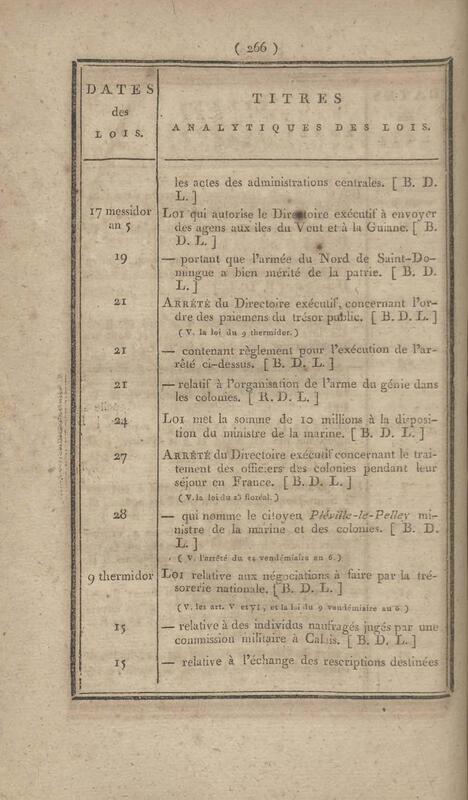 ( 266 )
DATES
des
LOIS.
TITRES
ANALYTIQUES DES LOIS.
les actes des administrations centrales. [ B. D.
L. ]
17 messidor
an 5
LOI qui autorise le Directoire exécutif à envoyer
des agens aux iles du Vent et à la Guiane. [ B.
D. L. ]
19
— portant que l'armée du Nord de Saint-Do-
mingue a bien mérité de la patrie. [ B. D.
L. ]
21
ARRÊTÉ du Directoire exécutif, concernant l'or-
dre des paiemens du trésor public. [ B. D. L. ]
( V. la loi du 9 thermidor. )
21
— contenant règlement pour l'exécution de l'ar-
rêté ci-dessus. [ B. D. L. ]
21
— relatif à l'organisation de l'arme du génie dans
les colonies. [ B. D. L. ]
24
LOI met la somme de 10 millions à la disposi-
tion du ministre de la marine. [ B. D. L. ]
27
ARRÊTÉ du Directoire exécutif concernant le trai-
tement des officiers des colonies pendant leur
séjour en France. [ B. D. L. ]
( V. la loi du 23 floréal. )
28
— qui nomme le citoyen Pléville-le-Pelley mi-
nistre de la marine et des colonies. [ B. D.
L. ]
( V. l'arrêté du 14 vendémiaire an 6. )
9 thermidor
LOI relative aux négociations à faire par la tré-
sorerie nationale. [ B. D. L. ]
( V. les art. V et VI, et la loi du 9 vendémiaire an 6. )
15
— relative à des individus naufragés jugés par une
commission militaire à Calais. [ B. D. L. ]
15
— relative à l'échange des rescriptions destinées